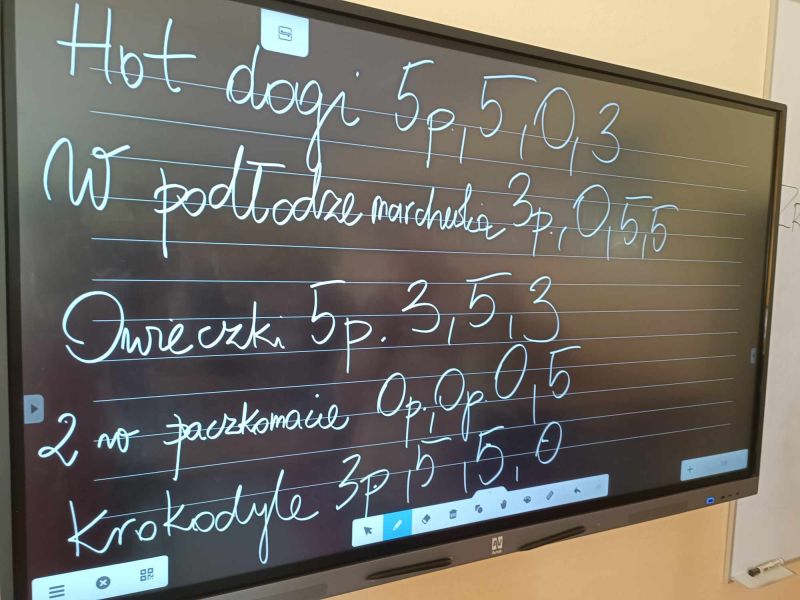 Hot dogi 5p., 5, 0, 3
W podłodze marchewka 3p., 0, 5, 5
Owieczki 5p. 3, 5, 3
2 w paczkomacie 0p., 0p 0, 5
Krokodyle 3p, 5, 5, 0